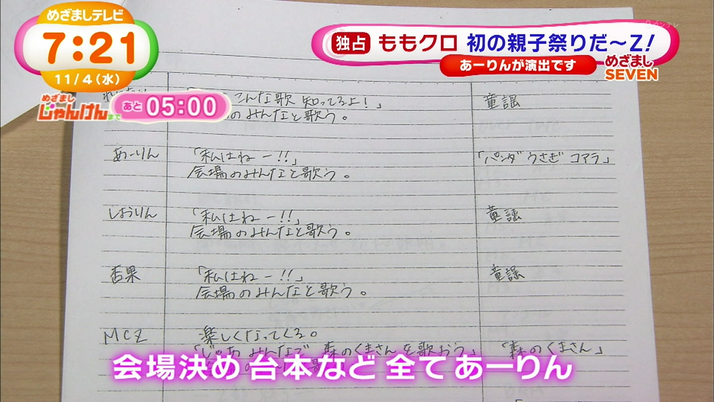 めざましテレビ
7:21
11/4(水)
めざまし
じゃんけんまで
あと 05:00
独占 ももクロ 初の親子祭りだ～Z!
あーりんが演出です
めざまし
SEVEN
こんな歌 知ってるよ!」 童謡
のみんなと歌う。
あーりん 「私はねー!!」 「パンダ うさぎ コアラ」
会場のみんなと歌う。
しおりん 「私はねー!!」 童謡
会場のみんなと歌う。
杏果 「私はねー!!」 童謡
会場のみんなと歌う。
MCZ 楽しくなってくる。
「じゃあ みんなで 森のくまさんを歌おう」 「森のくまさん」
会場決め 台本など 全て あーりん